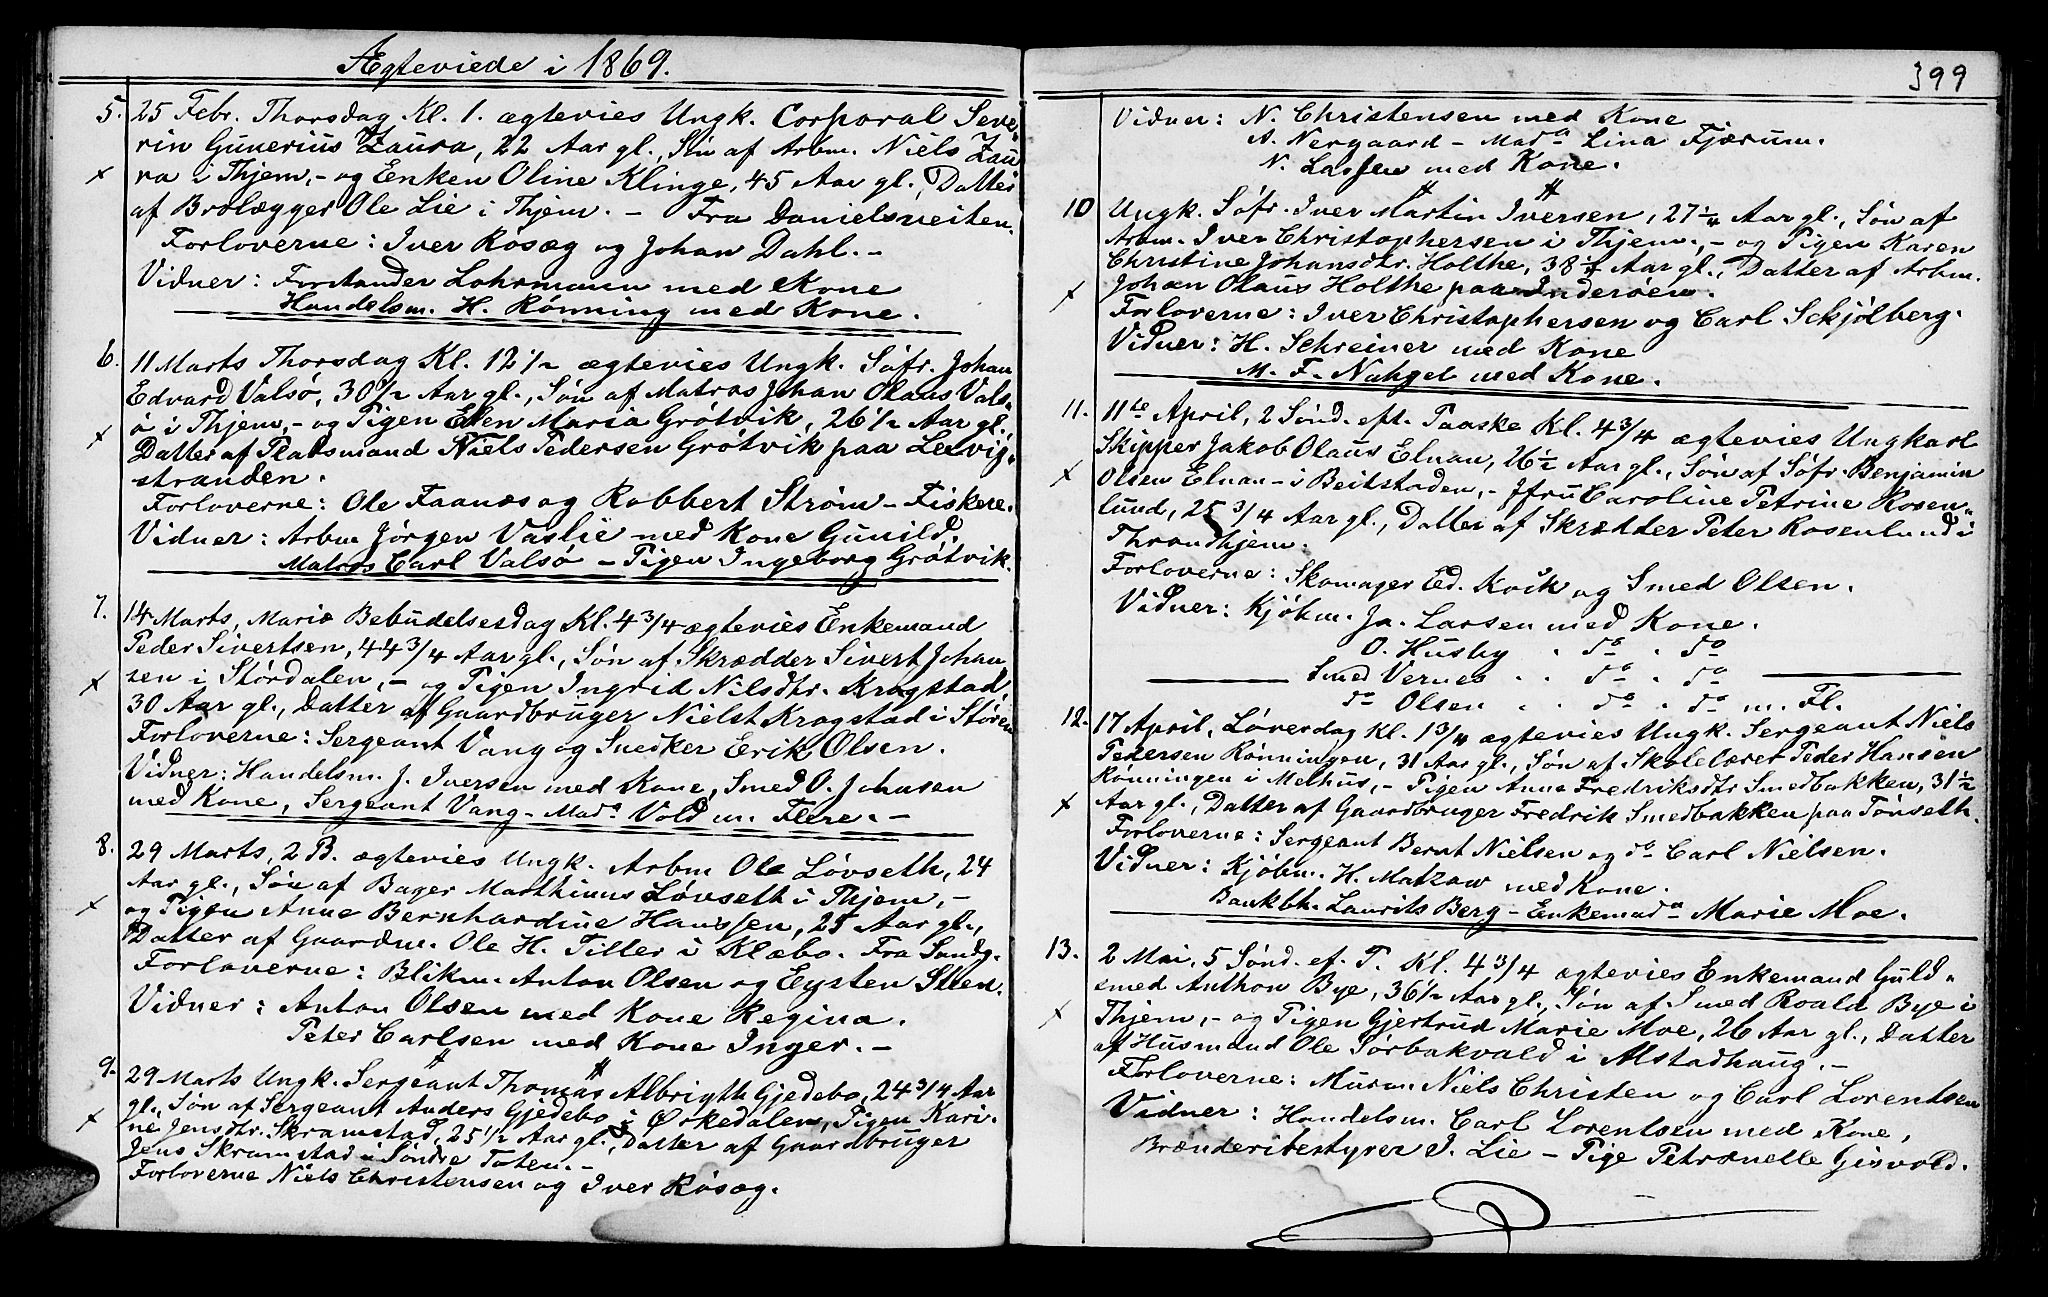 Ægteviede i 1869.
5. 25 Febr. Thorsdag Kl. 1. ægtevies Ungk. Corporal Seve-
rin Gunerius Laura, 22 Aar gl., Søn af Arbm. Niels Lau
ra i Thjem,- og Enken Oline Klinge, 45 Aar gl., Datter
af Brolægger Ole Lie i Thjem. - Fra Danielsveiten.
Forloverne: Iver Rosæg og Johan Dahl.-
Vidner: Forstander Lohrmann med Kone
Handelsm. H. Rønning med Kone.
6. 11 Marts Thorsdag Kl. 12 1/2 ægtevies Ungk. Søfr. Johan
Edvard Valsø, 30 1/2 Aar gl., Søn af Matros Johan Olaus Vals-
ø i Thjem,- og Pigen Elen Maria Grøtvik, 26 1/2 Aar gl.
Datter af Pladsmand Niels Pedersen Grøtvik paa Lexvig-
stranden.
Forloverne: Ole Faanæs og Robbert Strøm - Fiskere.
Vidner: Arbm Jørgen Vaslie med Kone Gunild.
Matros Carl Valsø - Pigen Ingeborg Grøtvik.
7. 14 Marts, Mariæ Bebudelsesdag Kl. 4 3/4 ægtevies Enkemand
Peder Sivertsen, 44 3/4 Aar gl., Søn af Skrædder Sivert Johan
sen i Størdalen,- og Pigen Ingrid Nilsdtr. Kragstad,
30 Aar gl., Datter af Gaardbruger Niels Kragstad i Støren
Forloverne: Sergeant Vang og Snedker Erik Olsen.
Vidner: Handelsm. J. Iversen med Kone, Smed O. Johnsen
med Kone, Sergeant Vang - Mada Vold m. Flere. -
8. 29 Marts, 2 P. ægtevies Ungk. Arbm Ole Løvseth, 24
Aar gl., Søn af Bager Marthinus Løvseth i Thjem,-
og Pigen Anne Bernhardine Hanssen, 25 Aar gl.,
Datter af Gaardm. Ole H. Tiller i Klæbo. Fra Sandg.
Forloverne: Blikm. Anton Olsen og Eysten Steen.
Vidner: Anton Olsen med Kone Regina.
Peter Carlsen med Kone Inger. -
9. 29 Marts Ungk. Sergeant Thomas Albrigth Gjedebo, 24 3/4 Aar
gl., Søn af Sergeant Anders Gjedebo i Ørkedalen, Pigen Kari-
ne Jensdtr. Skramstad, 25 1/2 Aar gl., Datter af Gaardbruger
Jens Skramstad i Søndre Toten. -
Forloverne Niels Christensen og Iver Rosæg.
399
Vidner: N. Christensen med Kone
A. Nergaard - Mada Lina Fjærum.
N. Lassen med Kone.
10 Ungk. Søfr. Iver Martin Iversen, 27 1/4 Aar gl., Søn af
Arbm. Iver Christophersen i Thjem.,- og Pigen Karen
Christine Johansdtr. Holthe, 38 1/4 Aar gl., Datter af Arbm.
Johan Olaus Holthe paa Inderøen.
Forloverne: Iver Christophersen og Carl Schjølberg.
Vidner: H. Schreiner med Kone
M. F. Nahgel med Kone.
11. 11te April, 2 Sønd. eft. Paaske Kl. 4 3/4 ægtevies Ungkarl
Skipper Jakob Olaus Elnan, 26 1/2 Aar gl., Søn af Søfr. Benjamin
Olsen Elnan - i Beitstaden,- Jfru Caroline Petrine Rosen-
lund, 25 3/4 Aar gl., Datter af Skrædder Peter Rosenlund i
Throndhjem.
Forloverne: Skomager Ed. Kvik og Smed Olsen.
Vidner: Kjøbm. Ja. Larsen med Kone.
O. Husby " do " do
Smed Vernes " " do " do
do Olsen " " do " do m. Fl.
12. 17 April, Løverdag Kl. 1 3/4 ægtevies Ungk. Sergeant Niels
Pedersen Rønningen, 31 Aar gl., Søn af Skolelærer Peder Hansen
Rønningen i Melhus,- Pigen Anne Fredriksdtr Smedbakken, 31 1/2
Aar gl., Datter af Gaardbruger Fredrik Smedbakken paa Tønseth.
Forloverne: Sergeant Bernt Nielsen og do Carl Nielsen.
Vidner: Kjøbm. H. Matzow med Kone.
Bankbh. Laurits Berg - Enkemada Marie Moe.
13. 2 Mai, 5 Sønd. ef. P. Kl. 4 3/4 ægtevies Enkemand Guld-
smed Anthon Bye, 36 1/2 Aar gl., Søn af Smed Roald Bye i
Thjem,- og Pigen Gjertrud Marie Moe, 26 Aar gl., Datter
af Husmand Ole Sørbakvald i Alstadhaug. -
Forloverne: Murm. Niels Christen og Carl Lorentsen
Vidner: Handelsm. Carl Lorentsen med Kone,
Brænderibestyrer I. Lie - Pige Petronelle Gisvold.